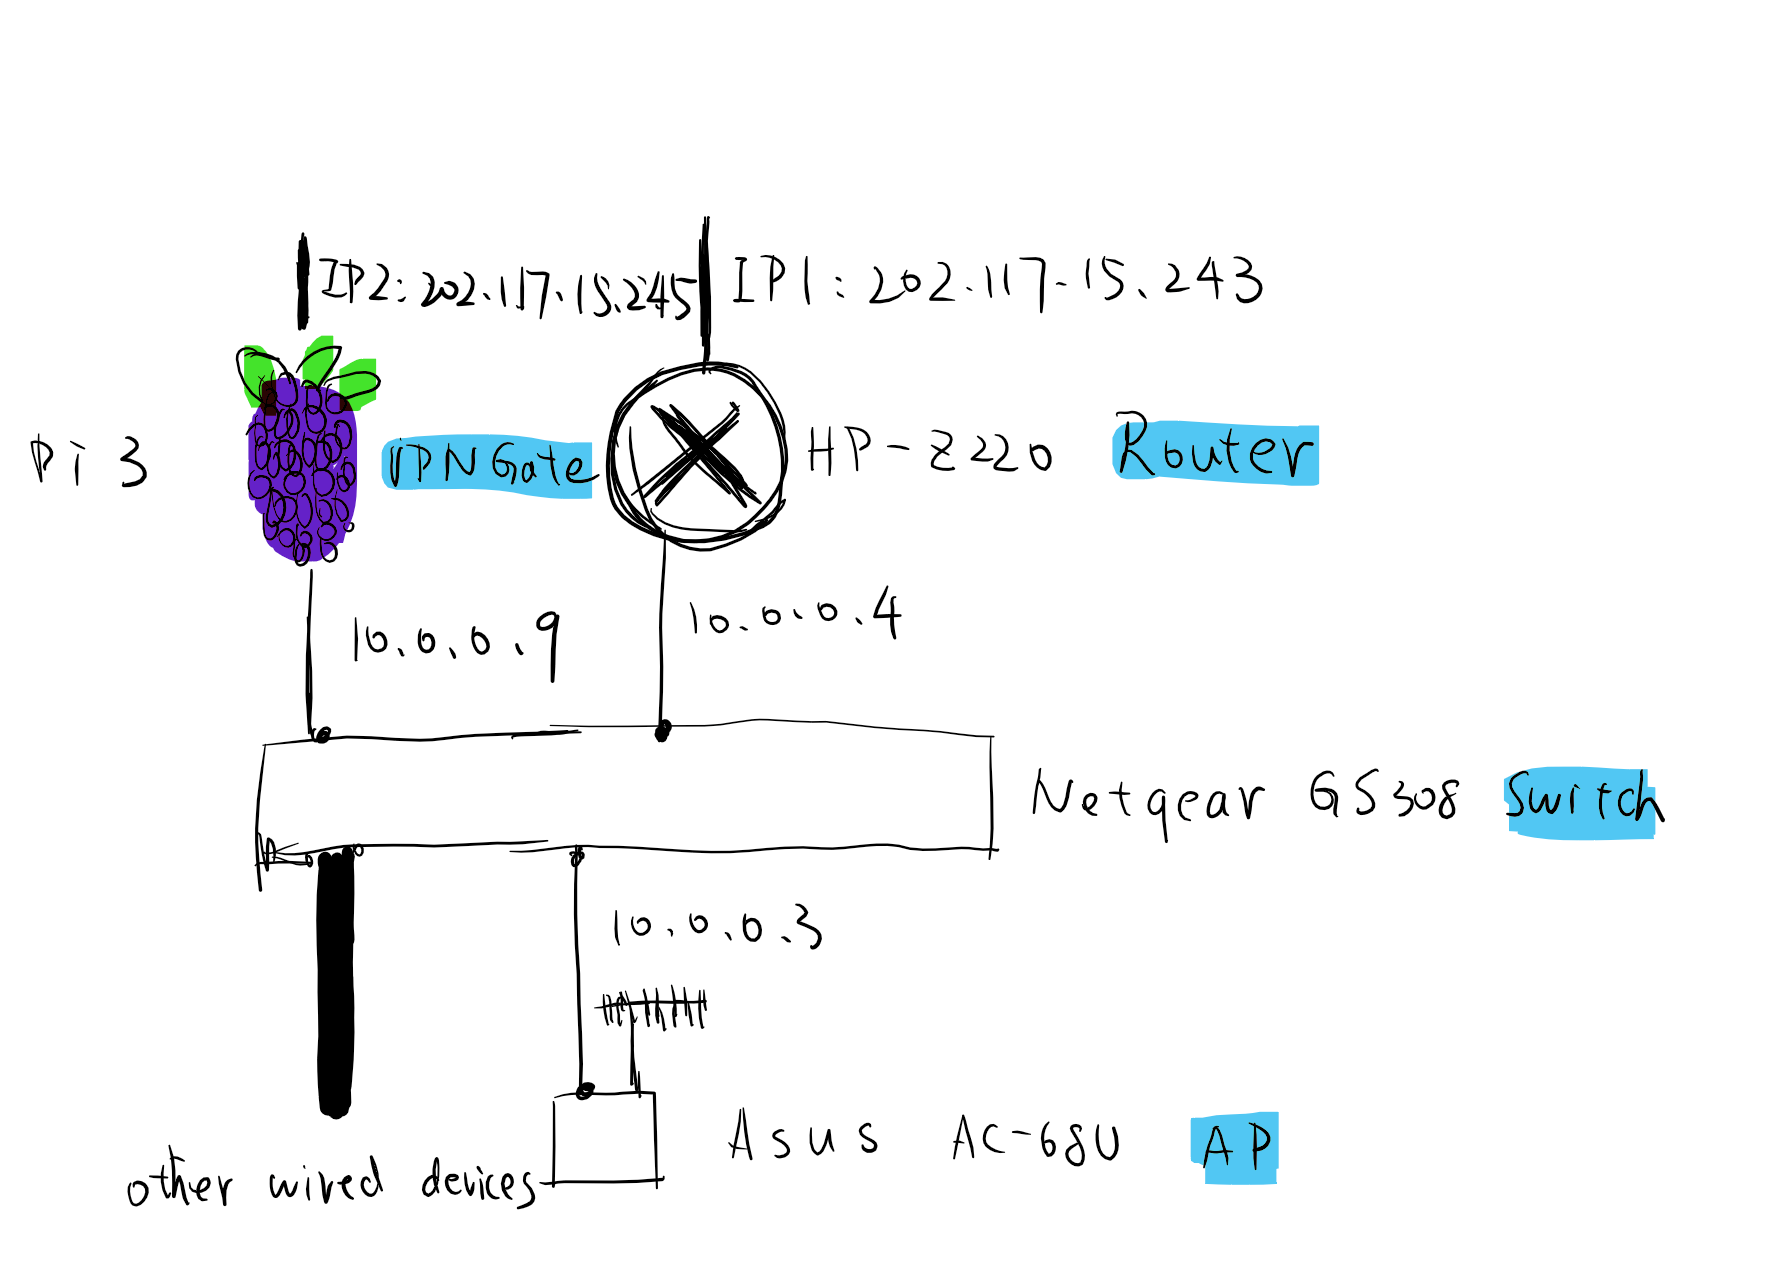 IP2: 202.117.15.245
IP1: 202.117.15.243
Pi 3
VPN Gate
HP-Z220
Router
10.0.0.9
10.0.0.4
Netgear GS308 Switch
10.0.0.3
Asus AC-68U AP
other wired devices